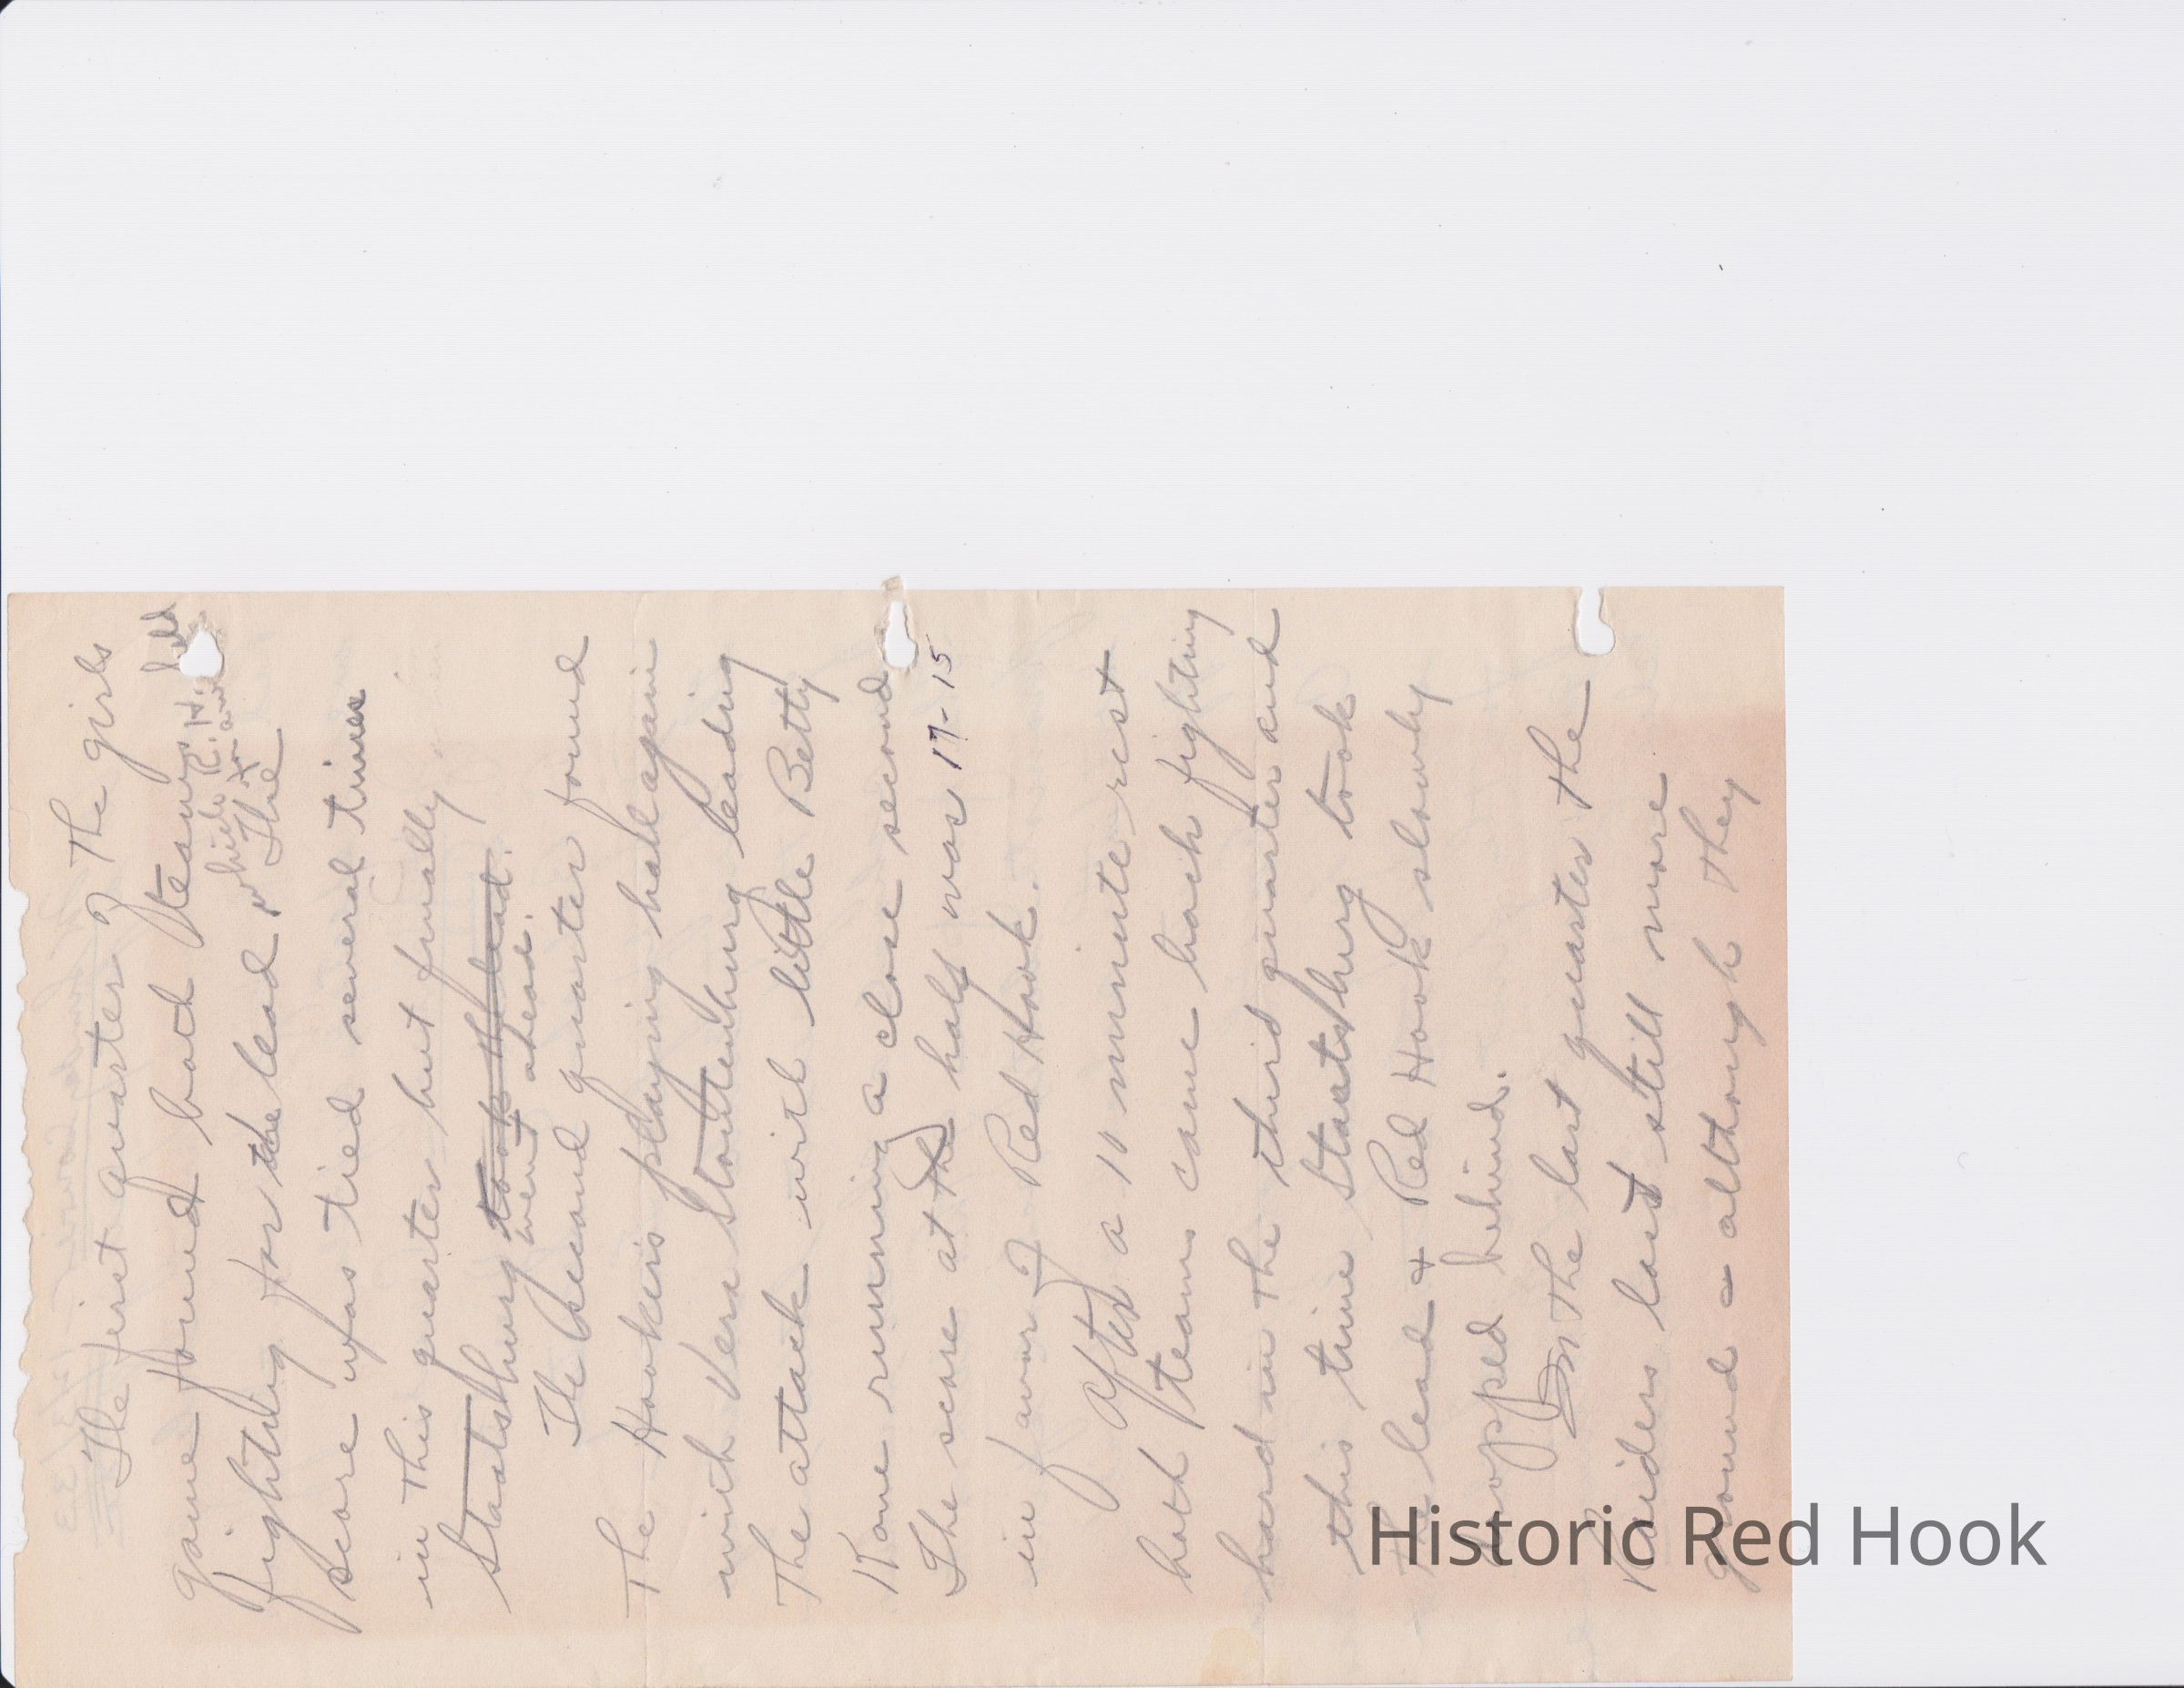 The first quarter of the girls
game found both teams
fighting for the lead which R.H. held
for a while The
score was tied several times
in this quarter but finally
Staatsburg took the lead.
went ahead.
The second quarter found
the Hookers playing ball again
with Vera Stoutenburg leading
the attack with little Betty
Kane running a close second
The score at the half was 17-15
in favor of Red Hook.
After a 10 minute rest
both teams came back fighting
hard in the third quarter and
this time Staatsburg took
the lead & Red Hook slowly
dropped behind.
In the last quarter the
Raiders lost still more
ground & although they
Historic Red Hook